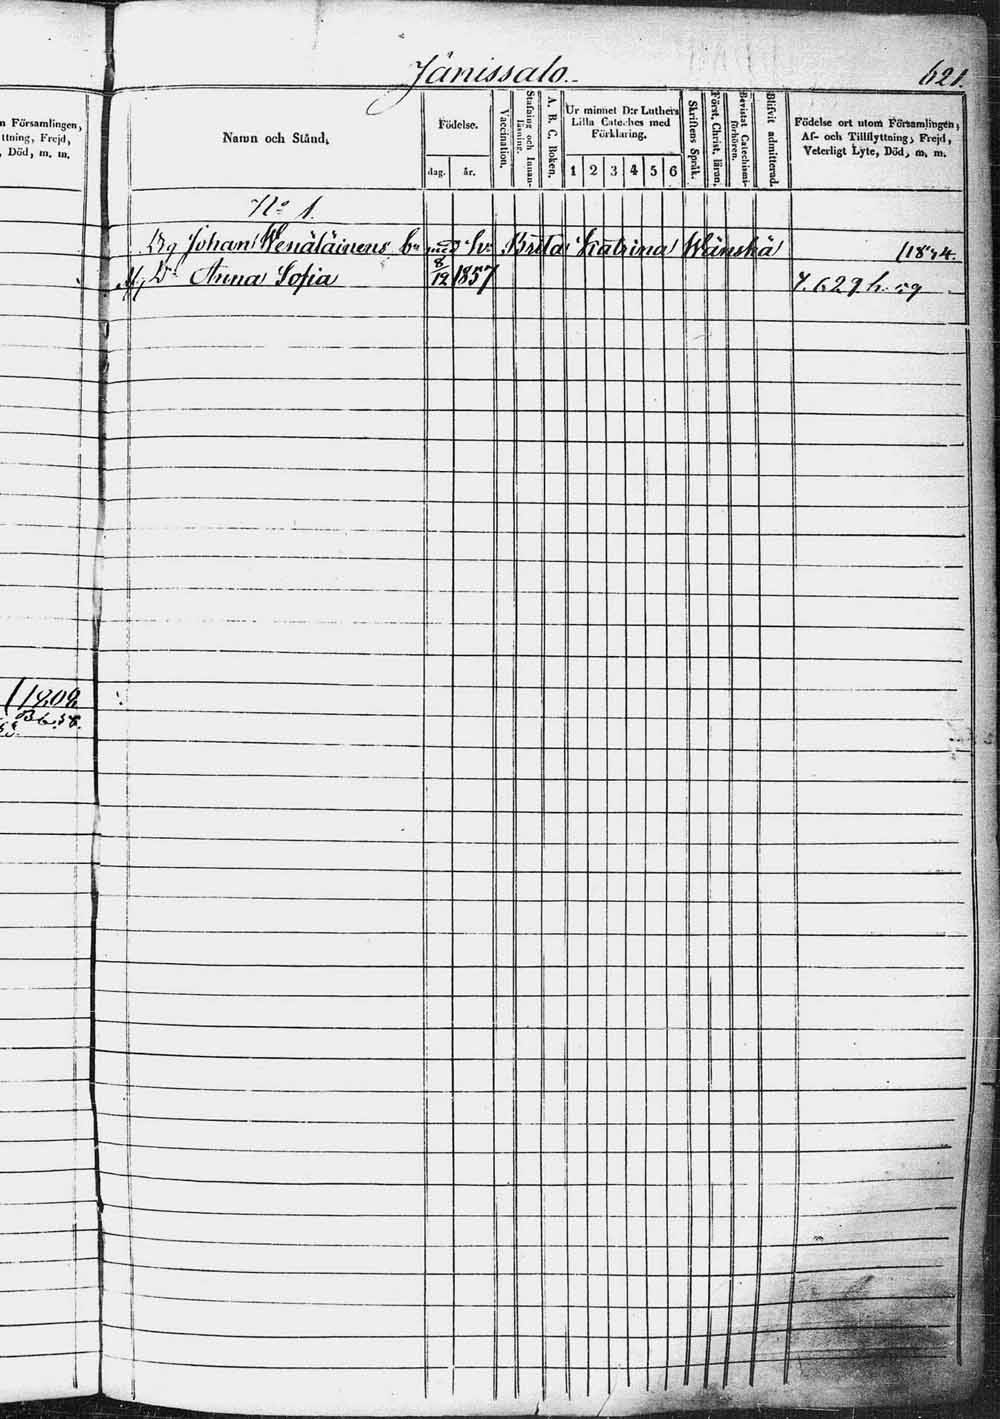 Jänissalo.
621.
n Församlingen,
ttning, Frejd,
, Död, m. m.
Namn och Stånd,
Födelse.
dag.
år.
Vaccination.
Stafning och Innan-
läsning.
A. B. C. Boken.
Ur minnet D:r Luthers
Lilla Cateches med
Förklaring.
1 2 3 4 5 6
Skriftens Språk.
Först. Christ. läran.
Bevistat Catechismi-
förhören.
Blifvit admitterad.
Födelse ort utom Församlingen,
Af- och Tillflyttning, Frejd,
Veterligt Lyte, Död, m. m.
No 1.
Johan Venäläinens med Brita Katrina Wänskä
Dr Anna Sofia 8/12 1857
(1802